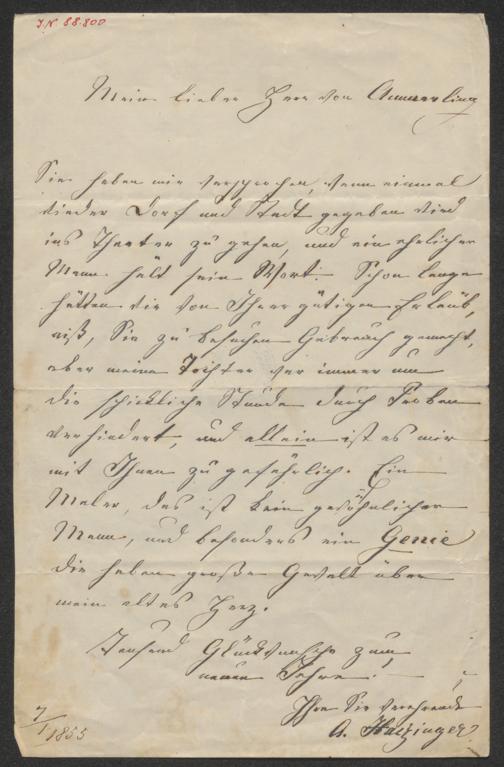 I.N. 88.800
Mein lieber Herr von Ammerling
Sie haben mir versprochen, wenn einmal
wieder Dorf und Stadt gegeben wird
ins Theater zu gehen, und ein ehrlicher
Mann hält sein Wort. Schon lange
hätten wir von Ihrer gütigen Erlaub,
niß, Sie zu besuchen Gebrauch gemacht,
aber meine Tochter war immer um
die schickliche Stunde durch Proben
verhindert, und allein ist es mir
mit Ihnen zu gefährlich. Ein
Maler, das ist kein gewöhnlicher
Mann, und besonders ein Genie
die haben große Gewalt über
mein altes Herz.
Tausend Glückwünsche zum
neuen Jahre.
Ihre Sie verehrende
A. Haizinger.
7/1 1855